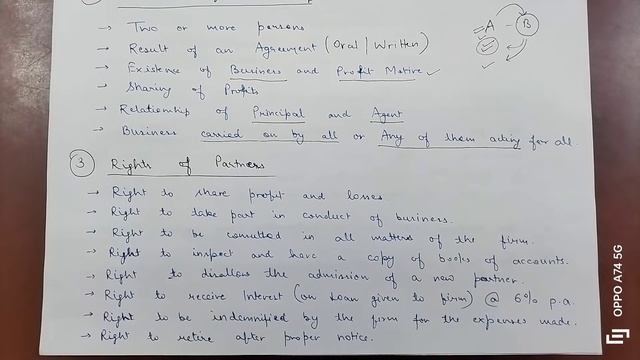 → Two or more persons
→ Result of an Agreement (Oral | Written)
→ Existence of Business and Profit Motive ✓
→ Sharing of Profits
→ Relationship of Principal and Agent
→ Business carried on by all or Any of them acting for all.
A - B
③ Rights of Partners
→ Right to share profit and losses
→ Right to take part in conduct of business.
→ Right to be consulted in all matters of the firm.
→ Right to inspect and have a copy of books of accounts.
→ Right to disallow the admission of a new partner.
→ Right to receive Interest (on Loan given to firm) @ 6% p.a.
→ Right to be indemnified by the firm for the expenses made.
→ Right to retire after proper notice.
OPPO A74 5G